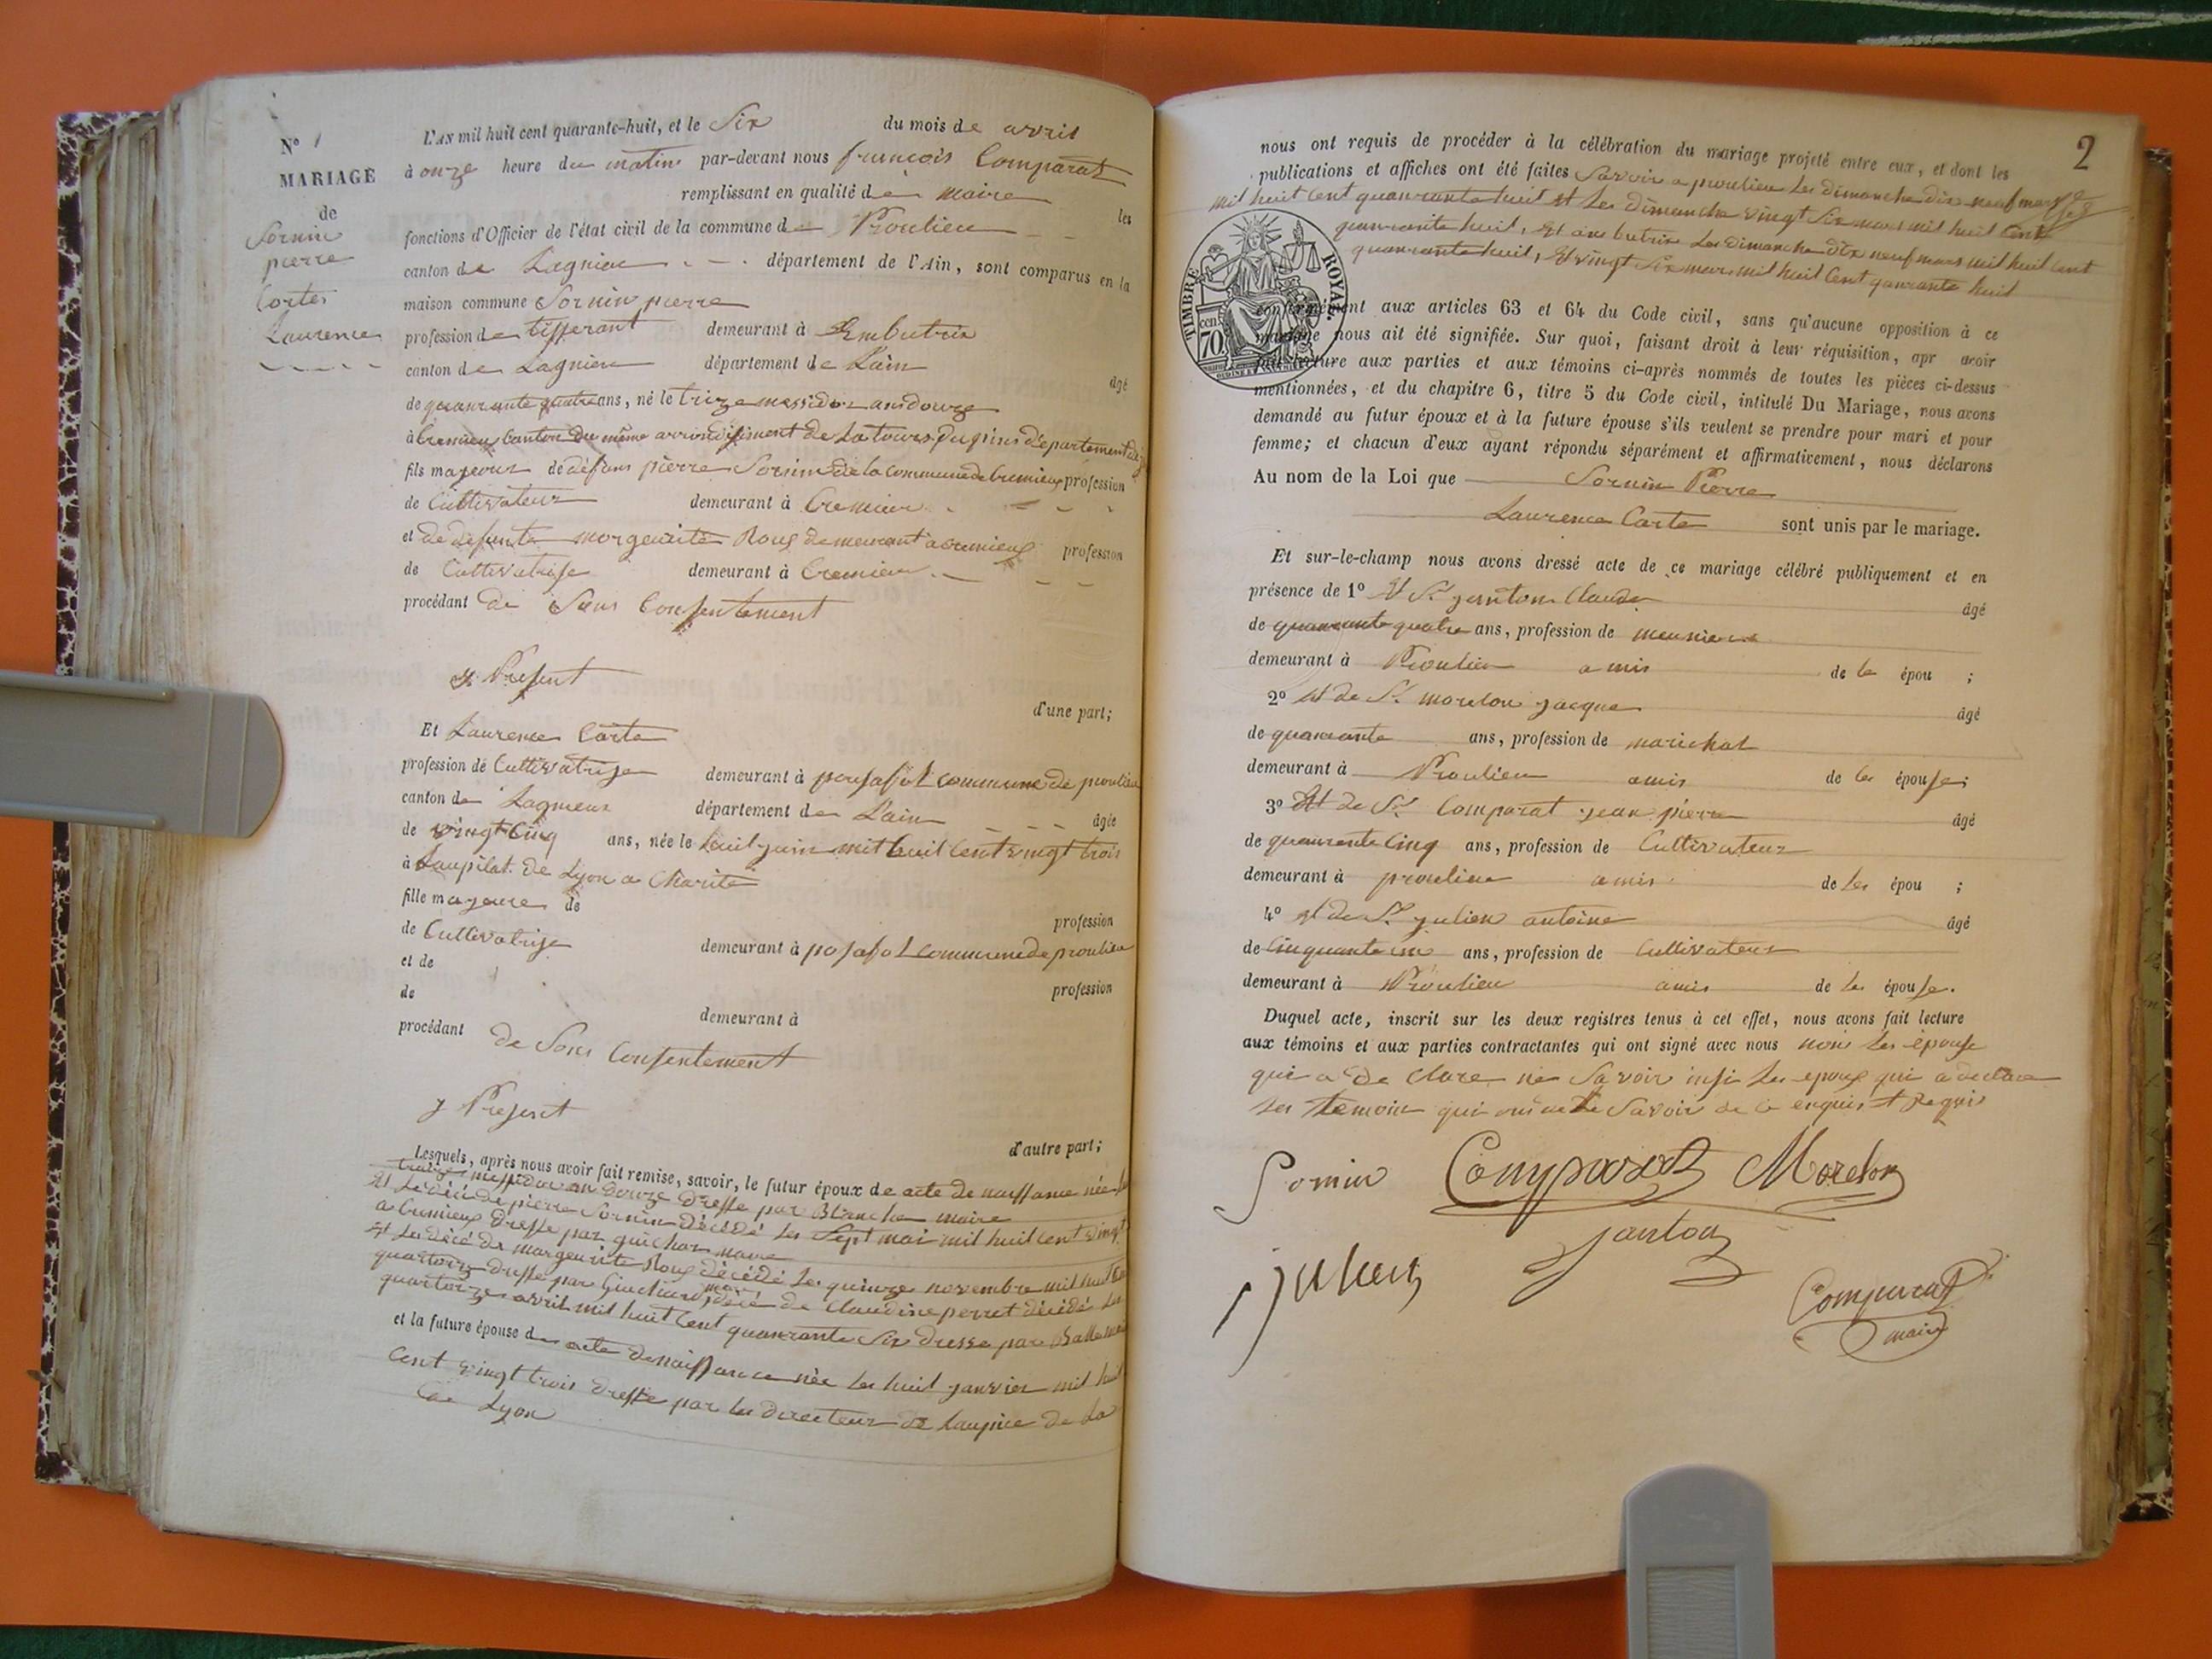 N° 1
MARIAGE
de
Sornin
pierre
Cortes
Laurence
L'AN mil huit cent quarante-huit, et le Six du mois de avril
à onze heure du matin par-devant nous francois Comparat
remplissant en qualité de maire les
fonctions d'Officier de l'état civil de la commune de Proulieu
canton de Lagnieu département de l'Ain, sont comparus en la
maison commune Sornin pierre
profession de tisserant demeurant à Embutrix
canton de Lagnieu département de L'ain âgé
de quanrante quatre ans, né le trize messidor an douze
à Cremieu Canton du même arrondissiment de La tours du pins département
fils majeur de défunt pierre Sornin de la commune de Cremieux profession
de Cultivateur demeurant à Cremieu
et de defunte margeurite Roux demeurant a cremieux profession
de Cultivatrise demeurant à Cremieu
procédant de Sons Consentement
y Present
d'une part;
Et Laurence Corte
profession de Cultivatrise demeurant à posafol commune de proulieu
canton de Lagnieux département de L'ain âgée
de vingt Cinq ans, née le huit juin mil huit Cent vingt trois
à Laupilat de Lyon a Charité
fille majeure de profession
de Cultivatrise demeurant à posafol commune de proulieu
et de profession
de demeurant à
procédant de Sons Consentement
y Present
d'autre part;
Lesquels, après nous avoir fait remise, savoir, le futur époux de acte de naissance née le
traize messidor an douze dresse par Blanche maire
Et Le décé de pierre Sornin décédé les Sept mai mil huit Cent vingt
a Cremieux dresse par guichar maire
Et Les décé de margeurite Roux décédé Les quinze novembre mil huit Cent
quartorze dresse par Guichard maire décé de Claudine perret décédé Les
quartorze avril mil huit Cent quanrante Six dresse par Balle
et la future épouse de acte de naissance née les huit janvier mil huit
Cent vingt trois dresse par les directeur de Laupice de La
Lyon
2
nous ont requis de procéder à la célébration du mariage projeté entre eux, et dont les
publications et affiches ont été faites Savoir a proulieu Les dimanche dix neuf mars
mil huit Cent quanrante huit et Les dimanche vingt Six mars mil huit Cent
quanrante huit, Et a embutrix Les dimanche dix neuf mars mil huit Cent
quanrante huit, Et vingt Six mars mil huit Cent qanrante huit
TIMBRE ROYAL
70 cen
conformément aux articles 63 et 64 du Code civil, sans qu'aucune opposition à ce
mariage nous ait été signifiée. Sur quoi, faisant droit à leur réquisition, apr avoir
fait lecture aux parties et aux témoins ci-après nommés de toutes les pièces ci-dessus
mentionnées, et du chapitre 6, titre 5 du Code civil, intitulé Du Mariage, nous avons
demandé au futur époux et à la future épouse s'ils veulent se prendre pour mari et pour
femme; et chacun d'eux ayant répondu séparément et affirmativement, nous déclarons
Au nom de la Loi que Sornin Pierre
Laurence Corte sont unis par le mariage.
Et sur-le-champ nous avons dressé acte de ce mariage célébré publiquement et en
présence de 1° Et Sr janton Claude âgé
de quanrante quatre ans, profession de meuniere
demeurant à Proulieu amis de le épou ;
2° et de Sr morelon jacque âgé
de quanrante ans, profession de marichal
demeurant à Proulieu amis de les épouse;
3° Et de Sr Comparat jean pierre âgé
de quanrante Cinq ans, profession de Cultivateur
demeurant à proulieu amis de les épou ;
4° et de Sr julien antoine âgé
de Cinquante un ans, profession de Cultivateur
demeurant à Proulieu amis de les épouse.
Duquel acte, inscrit sur les deux registres tenus à cet effet, nous avons fait lecture
aux témoins et aux parties contractantes qui ont signé avec nous non les épouse
qui a de clare ne Savoir insi Les epoux qui a declare
Les temoin qui Savoir de ce enquis et Requis
Sornin Comparat Morelon
Janton
julien
Comparat
maire